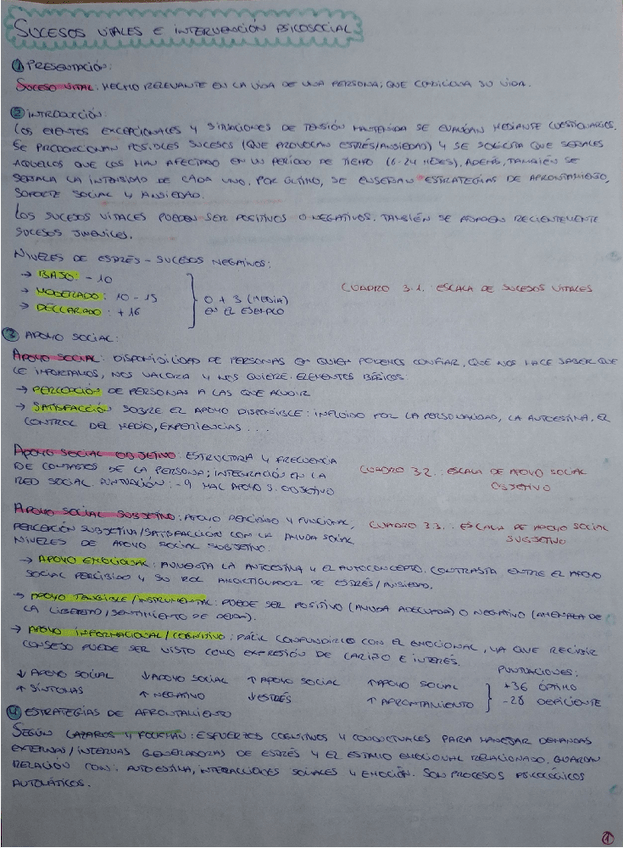 SUCESOS VITALES E INTERVENCIÓN PSICOSOCIAL
① PRESENTACIÓN:
SUCESO VITAL: HECHO RELEVANTE EN LA VIDA DE UNA PERSONA; QUE CONDICIONA SU VIDA.
② INTRODUCCIÓN:
LOS EVENTOS EXCEPCIONALES Y SITUACIONES DE TENSIÓN MANTENIDA SE EVALÚAN MEDIANTE CUESTIONARIOS.
SE PROPORCIONAN POSIBLES SUCESOS (QUE PROVOCAN ESTRÉS/ANSIEDAD) Y SE SOLICITA QUE SEÑALES
AQUELLOS QUE LOS HAN AFECTADO EN UN PERÍODO DE TIEMPO (6-24 MESES). ADEMÁS, TAMBIÉN SE
SEÑALA LA INTENSIDAD DE CADA UNO. POR ÚLTIMO, SE ENSEÑAN ESTRATEGIAS DE AFRONTAMIENTO,
SOPORTE SOCIAL Y ANSIEDAD.
LOS SUCESOS VITALES PUEDEN SER POSITIVOS O NEGATIVOS. TAMBIÉN SE AÑADEN RECIENTEMENTE
SUCESOS JUVENILES.
NIVELES DE ESTRÉS - SUCESOS NEGATIVOS:
→ BAJO: -10
→ MODERADO: 10-15
→ DECLARADO: +16
0 + 3 (MEDIA)
EN EL EJEMPLO
CUADRO 3.1. ESCALA DE SUCESOS VITALES
③ APOYO SOCIAL:
APOYO SOCIAL: DISPONIBILIDAD DE PERSONAS EN QUIEN PODEMOS CONFIAR, QUE NOS HACE SABER QUE
LE IMPORTAMOS, NOS VALORA Y NOS QUIERE. ELEMENTOS BÁSICOS:
→ PERCEPCIÓN DE PERSONAS A LAS QUE ACUDIR
→ SATISFACCIÓN SOBRE EL APOYO DISPONIBLE: INFLUIDO POR LA PERSONALIDAD, LA AUTOESTIMA, EL
CONTROL DEL MEDIO, EXPERIENCIAS...
APOYO SOCIAL OBJETIVO: ESTRUCTURA Y FRECUENCIA
DE CONTACTOS DE LA PERSONA; INTEGRACIÓN EN LA
RED SOCIAL. PUNTUACIÓN: -9 MAL APOYO S. OBJETIVO
CUADRO 3.2. ESCALA DE APOYO SOCIAL
OBJETIVO
APOYO SOCIAL SUBJETIVO: APOYO PERCIBIDO Y FUNCIONAL,
PERCEPCIÓN SUBJETIVA/SATISFACCIÓN CON LA AYUDA SOCIAL
NIVELES DE APOYO SOCIAL SUBJETIVO:
CUADRO 3.3. ESCALA DE APOYO SOCIAL
SUBJETIVO
→ APOYO EMOCIONAL: AUMENTA LA AUTOESTIMA Y EL AUTOCONCEPTO. CONTRASTA ENTRE EL APOYO
SOCIAL PERCIBIDO Y SU ROL AMORTIGUADOR DE ESTRÉS/ANSIEDAD.
→ APOYO TANGIBLE/INSTRUMENTAL: PUEDE SER POSITIVO (AYUDA ADECUADA) O NEGATIVO (AMENAZA DE
LA LIBERTAD/SENTIMIENTO DE DEUDA).
→ APOYO INFORMACIONAL/COGNITIVO: FÁCIL CONFUNDIRLO CON EL EMOCIONAL, YA QUE RECIBIR
CONSEJO PUEDE SER VISTO COMO EXPRESIÓN DE CARIÑO E INTERÉS.
↓ APOYO SOCIAL ↓ APOYO SOCIAL ↑ APOYO SOCIAL ↑ APOYO SOCIAL
↑ SÍNTOMAS ↑ NEGATIVO ↓ ESTRÉS ↑ AFRONTAMIENTO
PUNTUACIONES:
+36 ÓPTIMO
-28 DEFICIENTE
④ ESTRATEGIAS DE AFRONTAMIENTO
SEGÚN LAZARUS Y FOLKMAN: ESFUERZOS COGNITIVOS Y CONDUCTUALES PARA MANEJAR DEMANDAS
EXTERNAS/INTERNAS GENERADORAS DE ESTRÉS Y EL ESTADO EMOCIONAL RELACIONADO. GUARDAN
RELACIÓN CON: AUTOESTIMA, INTERACCIONES SOCIALES Y EMOCIÓN. SON PROCESOS PSICOLÓGICOS
AUTOMÁTICOS.
①